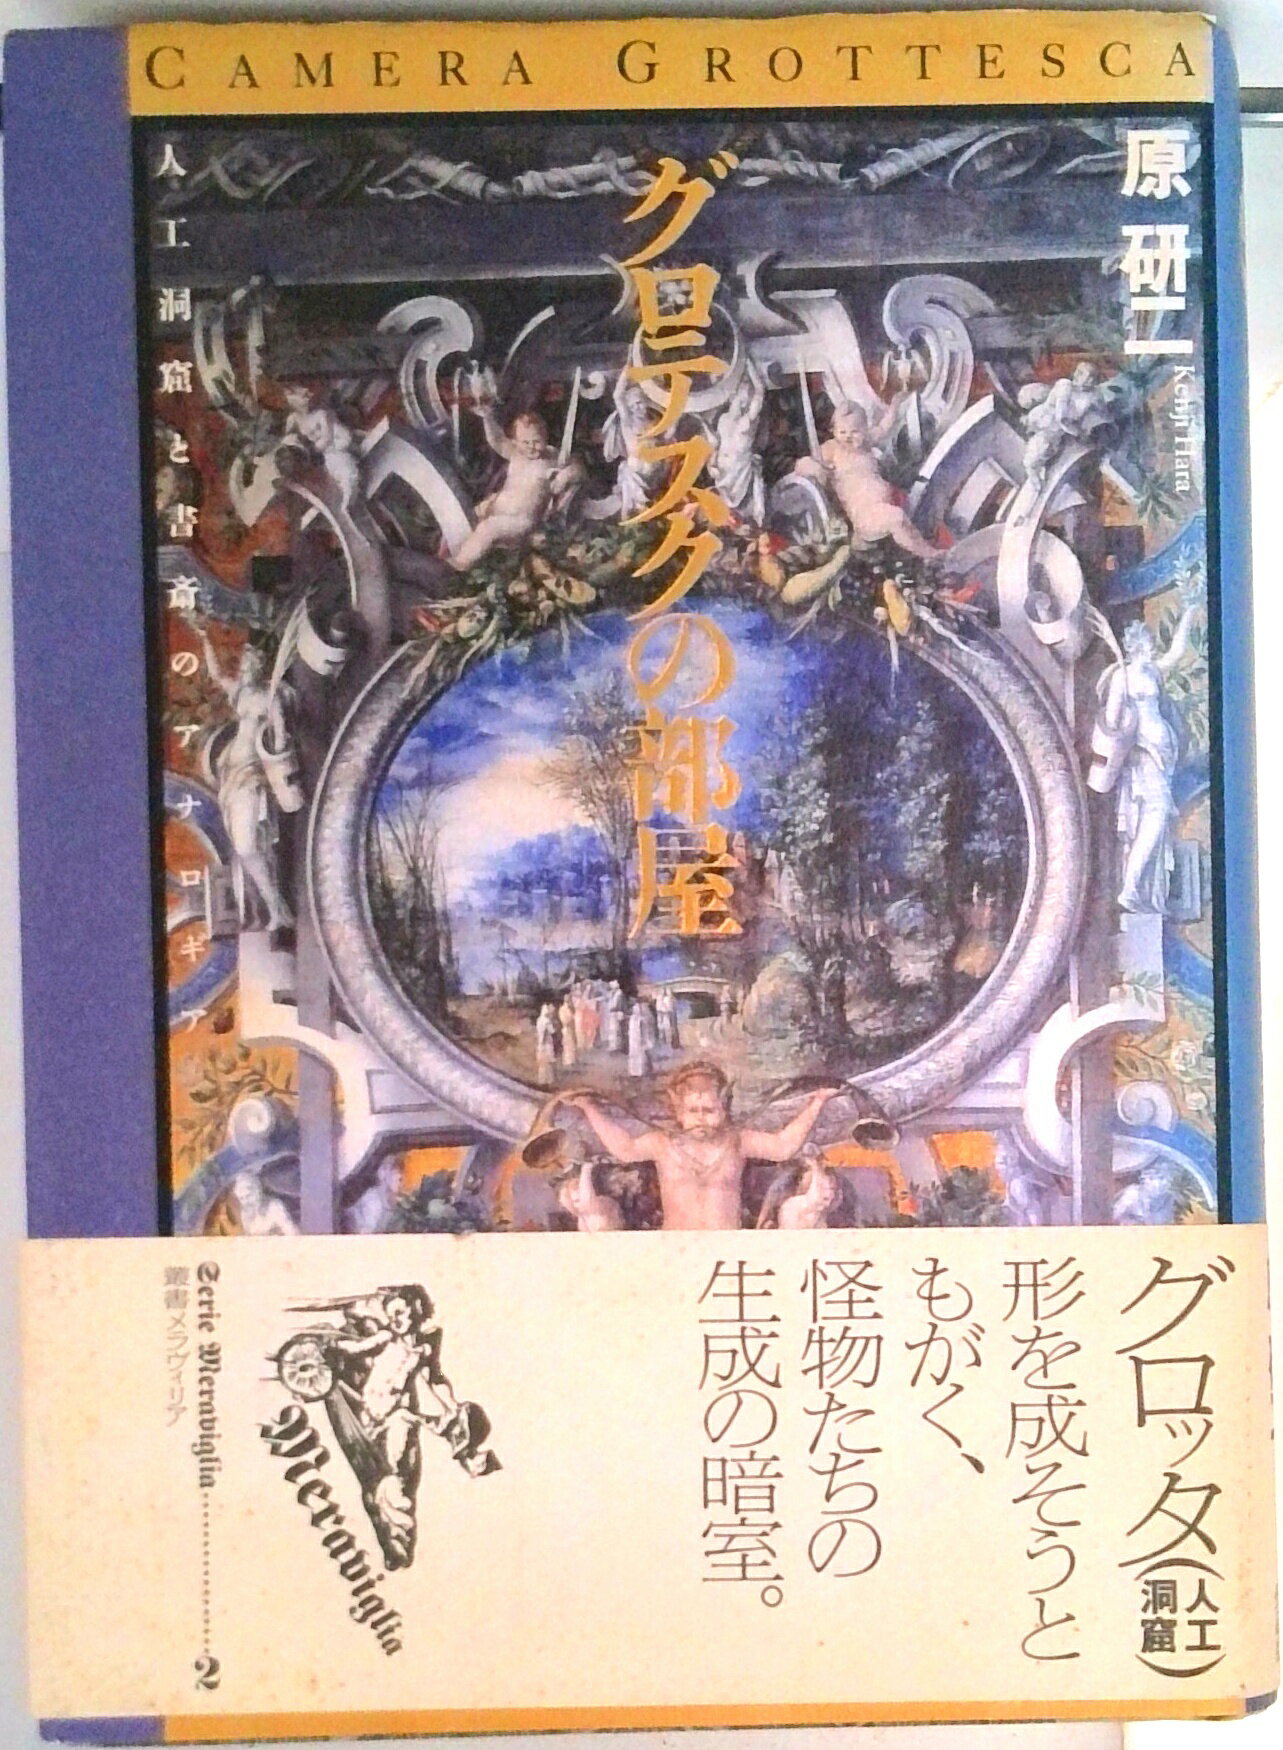 CAMERA GROTTESCA
原研二
Kenji Hara
グロテスクの部屋
人工洞窟と書斎のアナロギア
グロッタ(人工洞窟)
形を成そうと
もがく、
怪物たちの
生成の暗室。
Meraviglia
Serie Meraviglia............2
叢書メラヴィリア